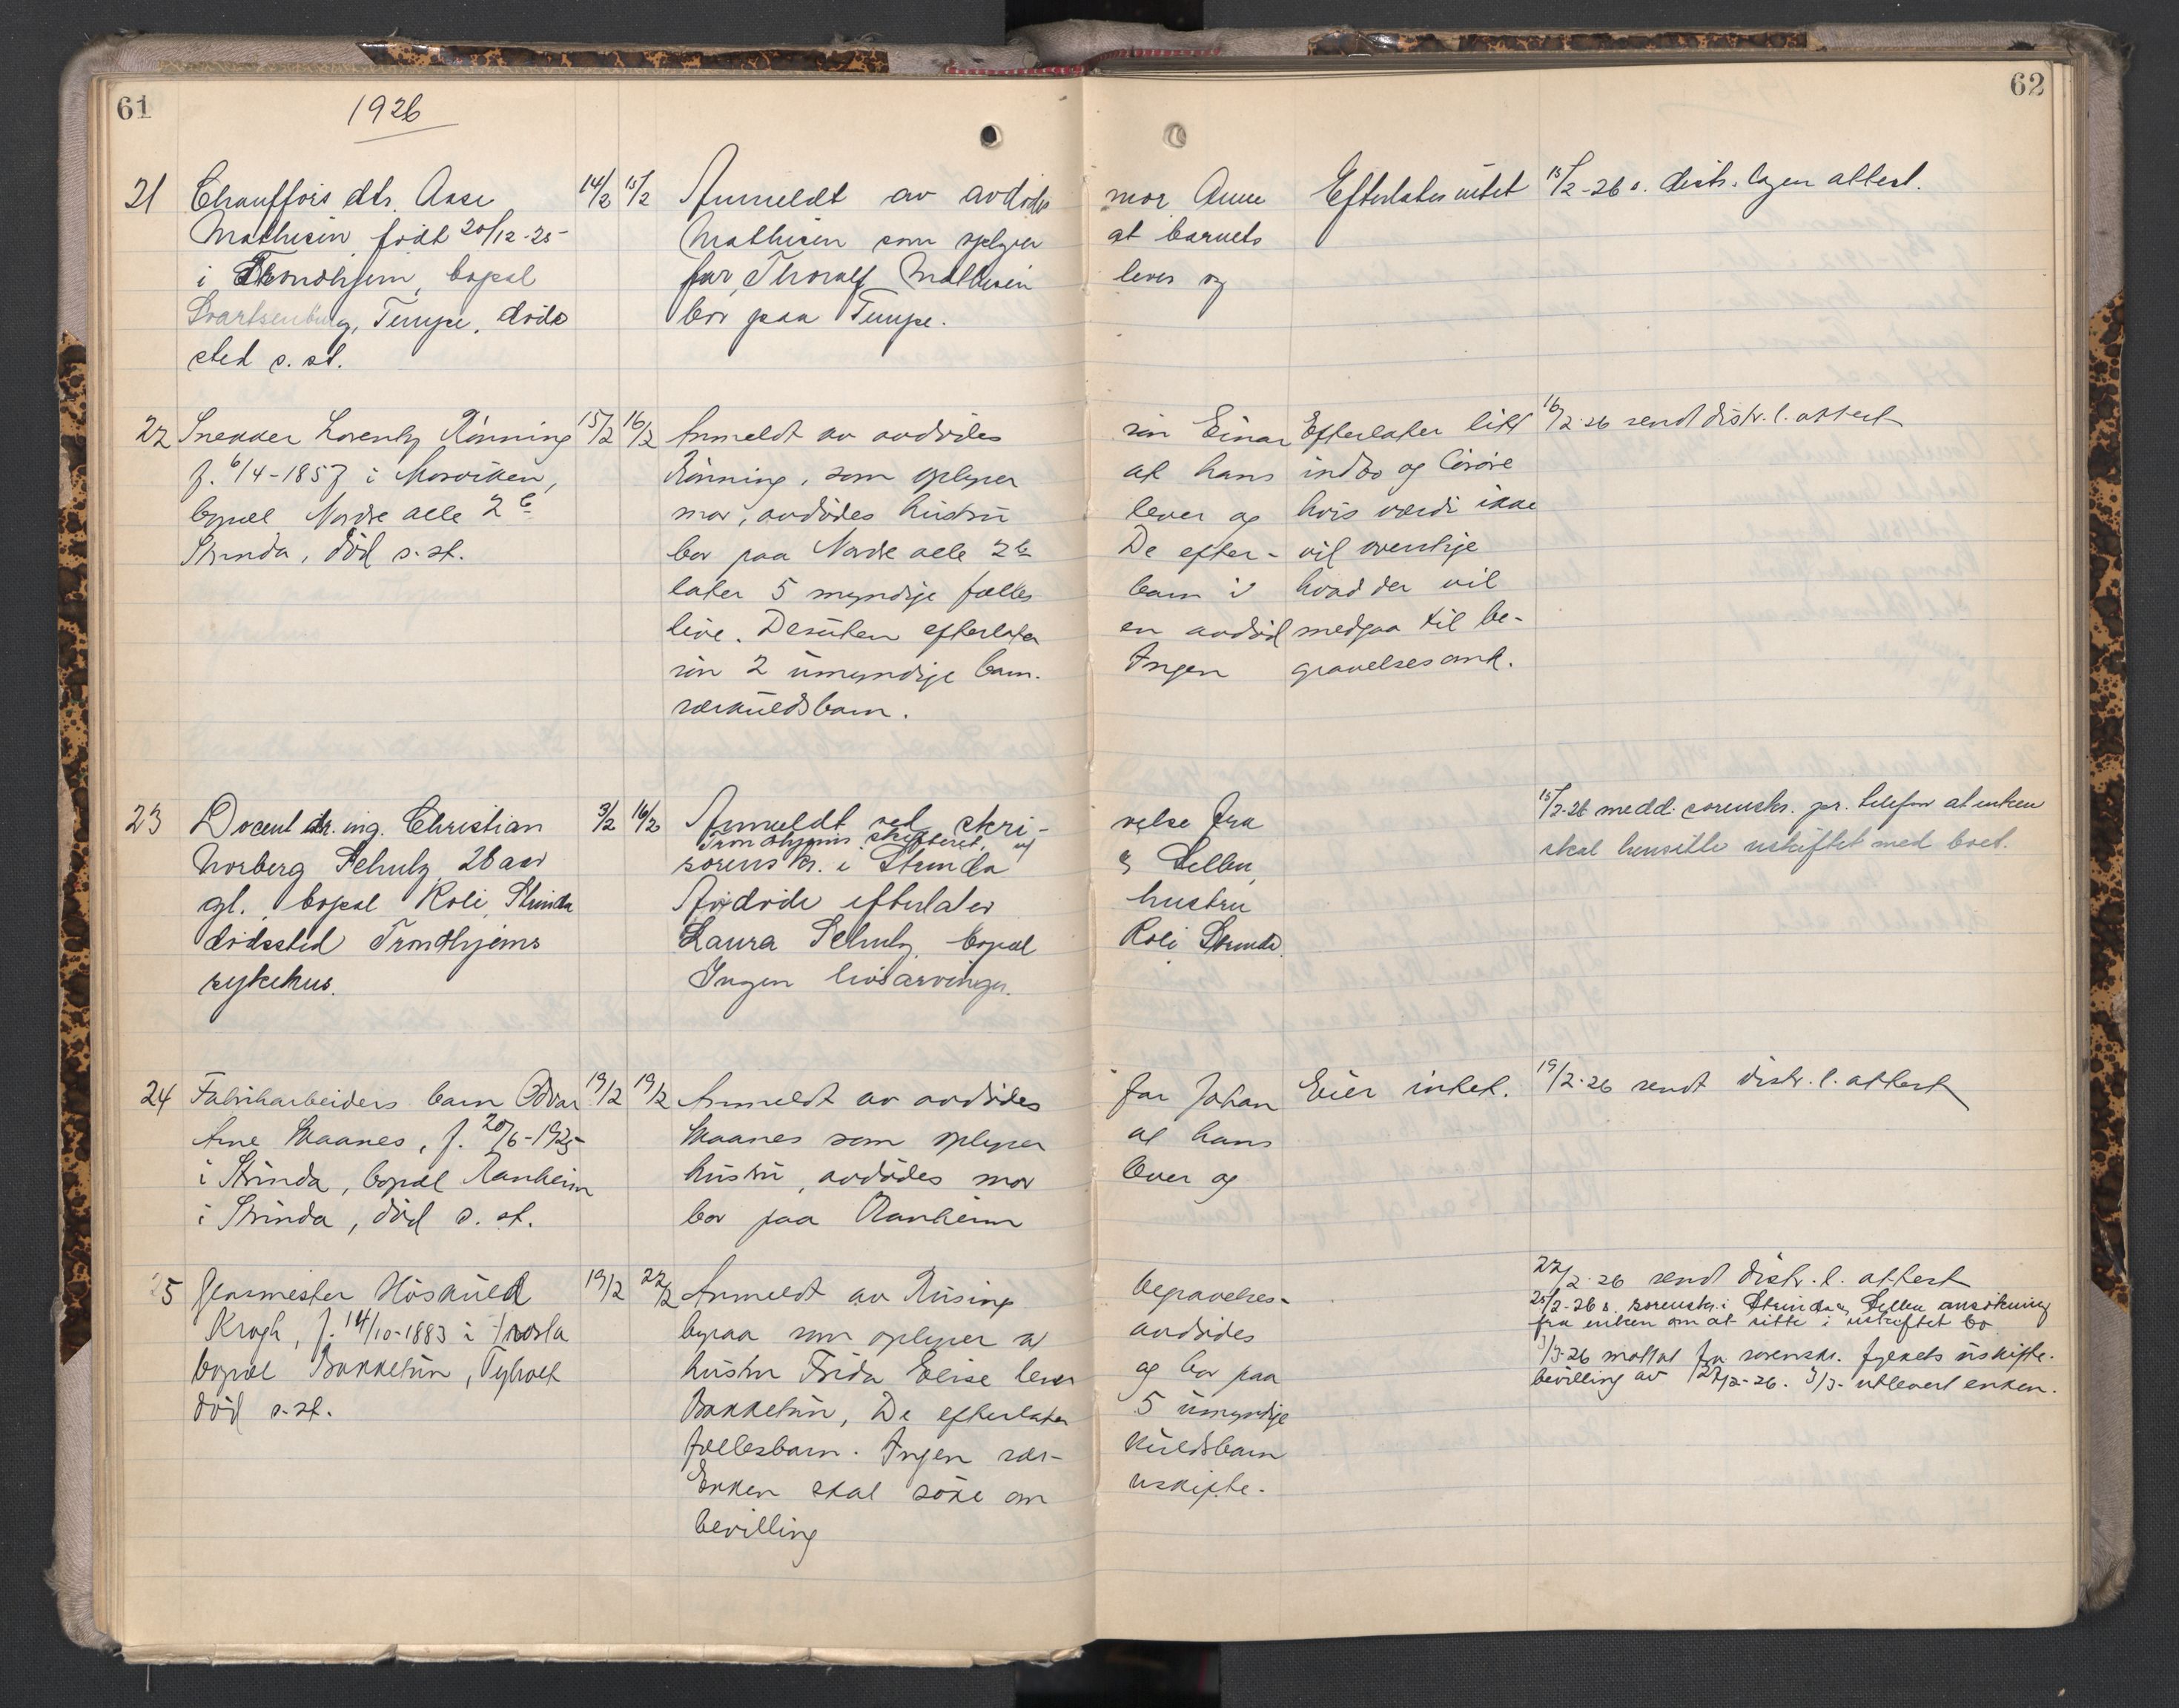 61
62
1926
21 Chaufførs dtr. Aase 14/2 15/2 Anmeldt av avdødes mor Anne Efterlates intet 15/2-26 s. distr. lægen attest.
Mathisen født 20/12-25 Mathisen som oplyser at barnets
i Trondhjem, bopæl far, Thoralf Mathisen lever og
Svartsenburg, Tempe, døds bor paa Tempe.
sted s. st.
22 Snekker Lorentz Rønning 15/2 16/2 Anmeldt av avdødes søn Einar Efterlater litt 16/2-26 sendt distr. l. attest
f. 6/4-1857 i Mosviken, Rønning, som oplyser at hans indbo og løsøre
bopæl Nordre alle 2 b mor, avdødes hustru lever og hvis værdi ikke
Strinda, død s. st. bor paa Nordre alle 2 b De efter- vil overstige
later 5 myndige fælles barn i hvad der vil
live. Desuten efterlater en avdød medgaa til be-
søn 2 umyndige barn. Ingen gravelsesomk.
særkuldsbarn.
23 Docent dr. ing. Christian 3/2 16/2 Anmeldt ved skri- velse fra 15/2-26 medd. sorenskr. pr. telefon at enken
Norberg Schulz, 28 aar Trondhjems skifteret, og skal hensitte uskiftet med boet.
gl., bopæl Roli, Strinda sorenskr. i Strinda & Selbu,
dødssted Trondhjems Avdøde efterlater hustru
sykehus. Laura Schulz, bopæl Roli Strinda.
Ingen livsarvinger.
24 Fabrikarbeiders barn Odvar 19/2 19/2 Anmeldt av avdødes far Johan Eier intet. 19/2-26 sendt distr. l. attest
Arne Maanes, f. 20/6-1925 Maanes som oplyser at hans
i Strinda, bopæl Ranheim hustru, avdødes mor lever og
i Strinda, død s. st. bor paa Ranheim
25 Gjørsmester Høskuld 19/2 22/2 Anmeldt av Rüsings begravelses- 22/2-26 sendt distr. l. attest
Krogh, f. 14/10-1883 i Frosta byraa som oplyser at avdødes 25/2-26 s. sorenskr. i Strinda & Selbu ansøkning
bopæl Bakketun, Tyholt hustru Frida Elise lever og bor paa fra enken om at sitte i uskiftet bo
død s. st. Bakketun, De efterlater 5 umyndige 3/3-26 mottat fra sorenskr. fylkets uskifte-
fællesbarn. Ingen sær- kuldsbarn bevilling av 27/2-26. 3/3- utlevert enken.
Enken skal søke om uskifte-
bevilling